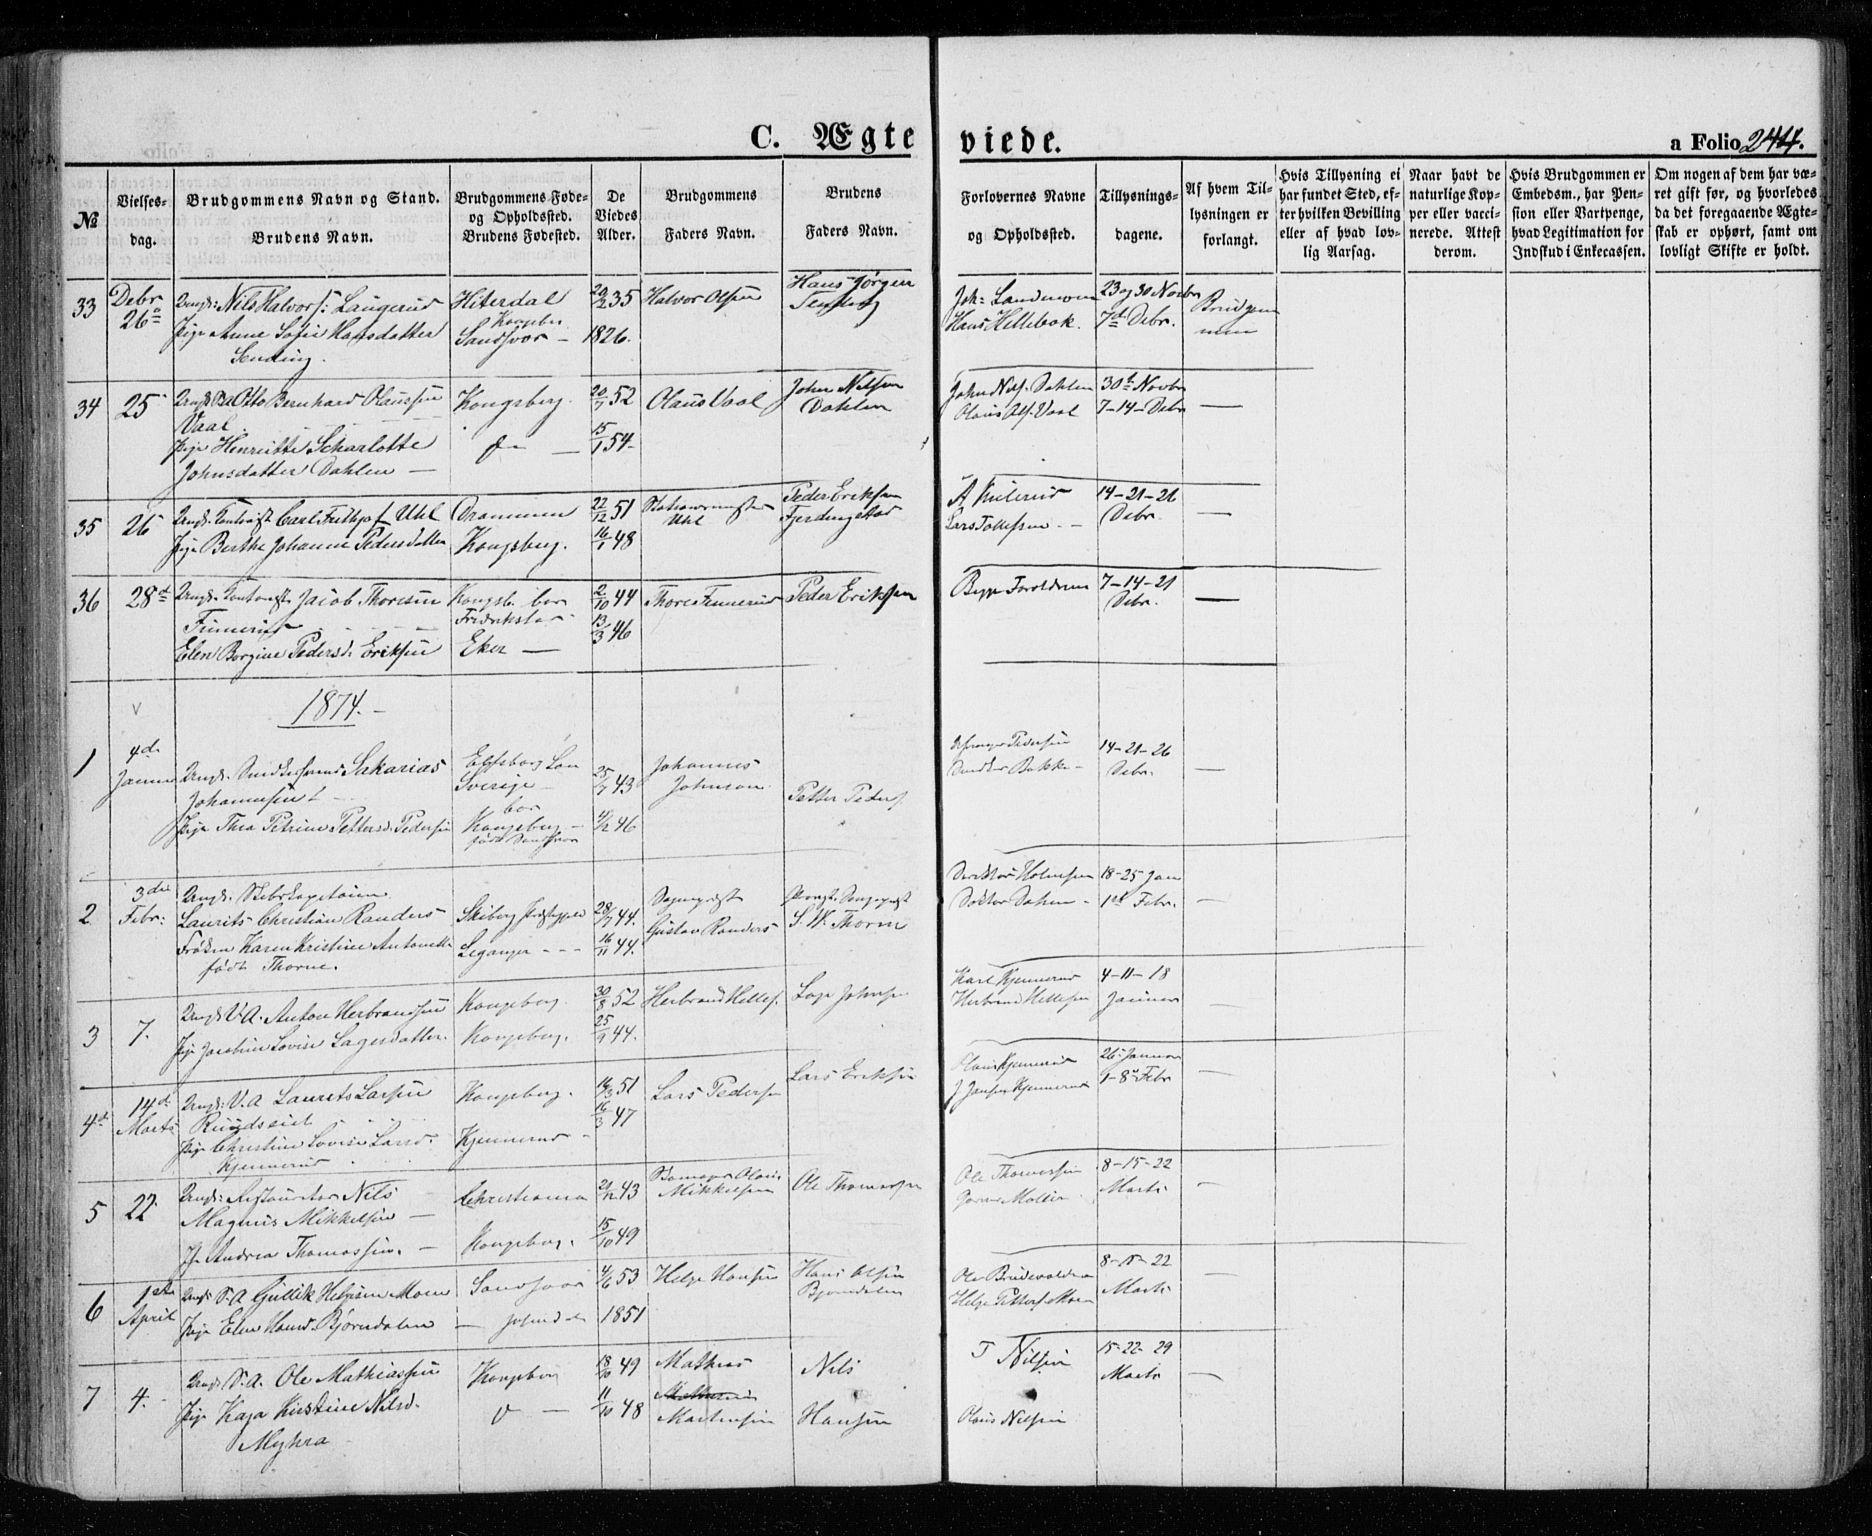 C. Ægte viede.
a Folio 244.
№
Vielses-
dag.
Brudgommens Navn og Stand.
Brudens Navn.
Brudgommens Føde-
og Opholdssted.
Brudens Fødested.
De
Viedes
Alder.
Brudgommens
Faders Navn.
Brudens
Faders Navn.
Forlovernes Navne
og Opholdssted.
Tillysnings-
dagene.
Af hvem Til-
lysningen er
forlangt.
Hvis Tillysning ei
har fundet Sted, ef-
ter hvilken Bevilling
eller af hvad lov-
lig Aarsag.
Naar havt de
naturlige Kop-
per eller vacci-
nerede. Attest
derom.
Hvis Brudgommen er
Embedsm., har Pen-
sion eller Vartpenge,
hvad Legitimation for
Indskud i Enkecassen.
Om nogen af dem har væ-
ret gift før, og hvorledes
da det foregaaende Ægte-
skab er ophørt, samt om
lovligt Skifte er holdt.
33
Debr
26
Ungk. Nils Halvors: Laugerud
Pige Anne Sofie Hansdatter
Sending.
Hiterdal
Kongsbr
Sandsvær —
20/2 35
1826.
Halvor Olsen
Hans Jørgen
Sending
Joh: Landmoen
Hans Hellebek.
23 og 30 Novbr
7d Debr.
Brudgom
men
34
25
Ungk B.A Otto Bernhard Olaussen
Vaal
Pige Henriette Scharlotte
Johnsdatter Dahlen —
Kongsberg.
do —
20/7 52
15/1 54
Olaus Vaal
John Nilsen
Dahlen
John Nils. Dahlen
Olaus Ols. Vaal
30t Novbr
7-14- Debr
—
35
26
Ungk. Contorist Carl Frithjof Uhl
Pige Berthe Johanne Pedersdatter
Drammen
Kongsberg.
22/12 51
16/1 48
Stationsmester
Uhl
Peder Eriksen
Fjerdingstad
Lars Tollefsen —
14-21-26
Debr.
—
36
28d
Ungk. Contorist Jacob Thoresen
Elen Borgine Pedersd. Eriksen
Kongsb. bor
Fredrikstad
Eker —
2/10 44
13/3 46
Peder Eriksen
Begge Forældrene
7-14-21
Debr.
—
1874.—
1
4de
Januar
Ungk. Sakarias
Johannesen
Pige Thea Petrine Pettersd. Pedersen
Elfsborg Län
Sverige
bor
Kongsberg —
født Sandsvær
25/7 43
4/12 46
Johannes
Johnson
Petter Peders
14-21-26
Debr.
—
2
3die
Febr:
Laurits Christian Randers
Frøken Karen Kristine Antonette
født Thorne.
Leganger - - -
28/7 44.
16/11 44.
Sogneprest
Gustav Randers
Provst Sogneprest
S. W. Thorne
Direktør Holmsen
Doktor Dahm —
18-25 Jan
1st Febr.
—
3
7.
Ungk V.A. Anton Herbrandsen
Pige Jacobine Lovise Lagesdatter.
Kongsberg.
Kongsberg.
30/8 52
25/9 44.
Herbrand Hellef.
Lage Johns
Karl Kjennerud
Herbrand Hellesen
4-11-18
Januar
—
4d
14d
Marts
Ungk: V.A Laurits Larsen
Pige Christine Lovise Larsd.
Kjennerud
Kongsberg.
Kjennerud —
14/3 51
16/3 47
Lars Pedersen
Lars Eriksen
Olaus Kjennerud
J Jansen Kjennerud
26- Januar
1-8d Febr
—
5
22
Ungk: Restauratør Nils
Magnus Mikkelsen —
P. Andrea Thomassen. —
Christiania
Kongsberg.
20/12 43
15/10 49
Mikkelsen
Ole Thomassen
Ole Thomassen
8-15-22
Marts
—
6
1ste
April
Ungk S.A Gullik Helgesen Moen
Pige Elen Hansd. Bjørndalen
Sandsvær
4/6 53
1851
Helge Hansen
Hans Olsen
Bjørndalen
Helge Petters. Moen
8-15-22
Marts
—
7
4.
Ungk S.A. Ole Mathiassen
Pige Kaja Kirstine Nilsd.
Myhra
Kongsberg
do —
18/10 49
11/10 48
Mathias
Martensen
Nils
Hansen
T Nilsen
Olaus Nilsen
15-22-29
Marts
—